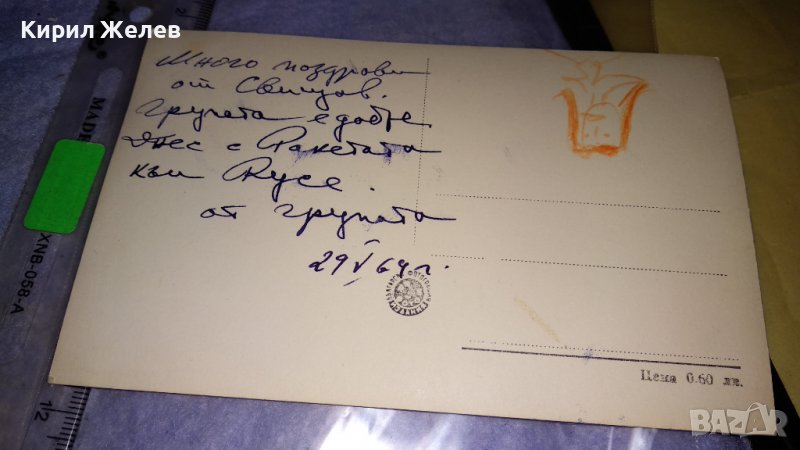 Кирил Желев
Много поздрави
от Свищов.
Групата е добре.
Днес с Ракетата
към Русе.
от групата
29 V 64 г.
Цена 0.60 лв.
XNB-058-A
MADE
1/2
BAZAR